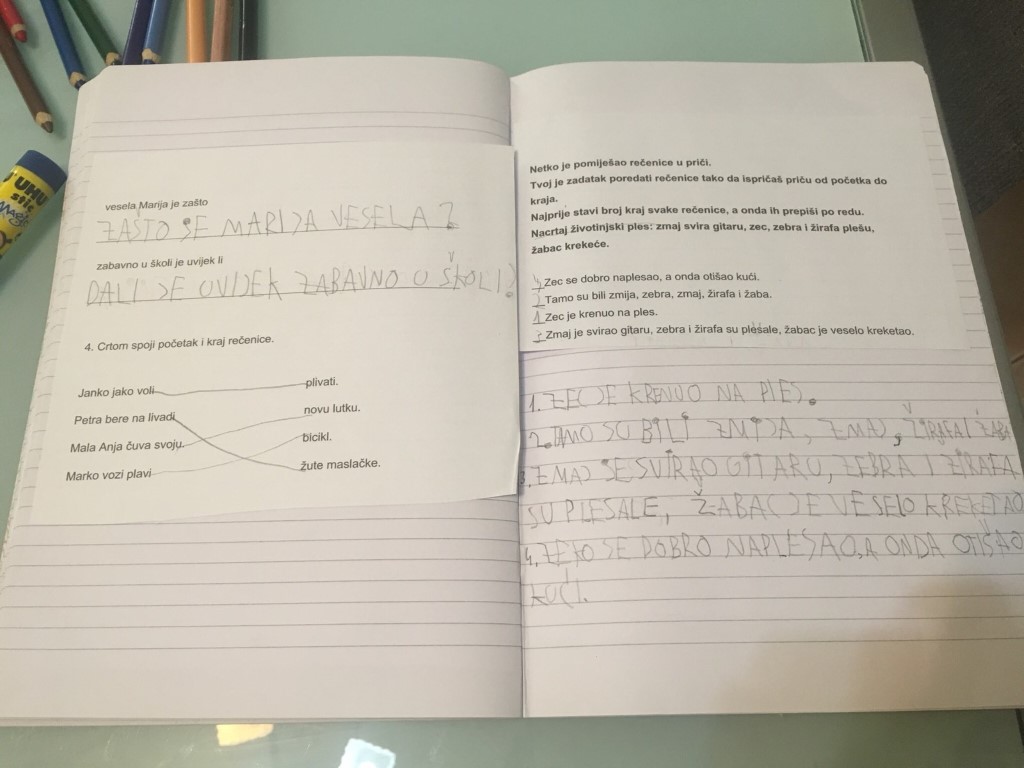 UHU
stic
Magic
vesela Marija je zašto
ZAŠTO SE MARIJA VESELA ?
zabavno u školi je uvijek li
DALI JE UVIJEK ZABAVNO U ŠKOLI?
4. Crtom spoji početak i kraj rečenice.
Janko jako voli plivati.
Petra bere na livadi novu lutku.
Mala Anja čuva svoju bicikl.
Marko vozi plavi žute maslačke.
Netko je pomiješao rečenice u priči.
Tvoj je zadatak poredati rečenice tako da ispričaš priču od početka do
kraja.
Najprije stavi broj kraj svake rečenice, a onda ih prepiši po redu.
Nacrtaj životinjski ples: zmaj svira gitaru, zec, zebra i žirafa plešu,
žabac krekeće.
4 Zec se dobro naplesao, a onda otišao kući.
2 Tamo su bili zmija, zebra, zmaj, žirafa i žaba.
1 Zec je krenuo na ples.
3 Zmaj je svirao gitaru, zebra i žirafa su plesale, žabac je veselo kreketao.
1. ZEC JE KRENUO NA PLES.
2. TAMO SU BILI ZMIJA, ZMAJ, ŽIRAFA I ŽABA
3. ZMAJ SE SVIRAO GITARU, ZEBRA I ŽIRAFA
SU PLESALE, ŽABAC JE VESELO KREKETAO
4. SE DOBRO NAPLESAO, A ONDA OTIŠAO
KUĆI.